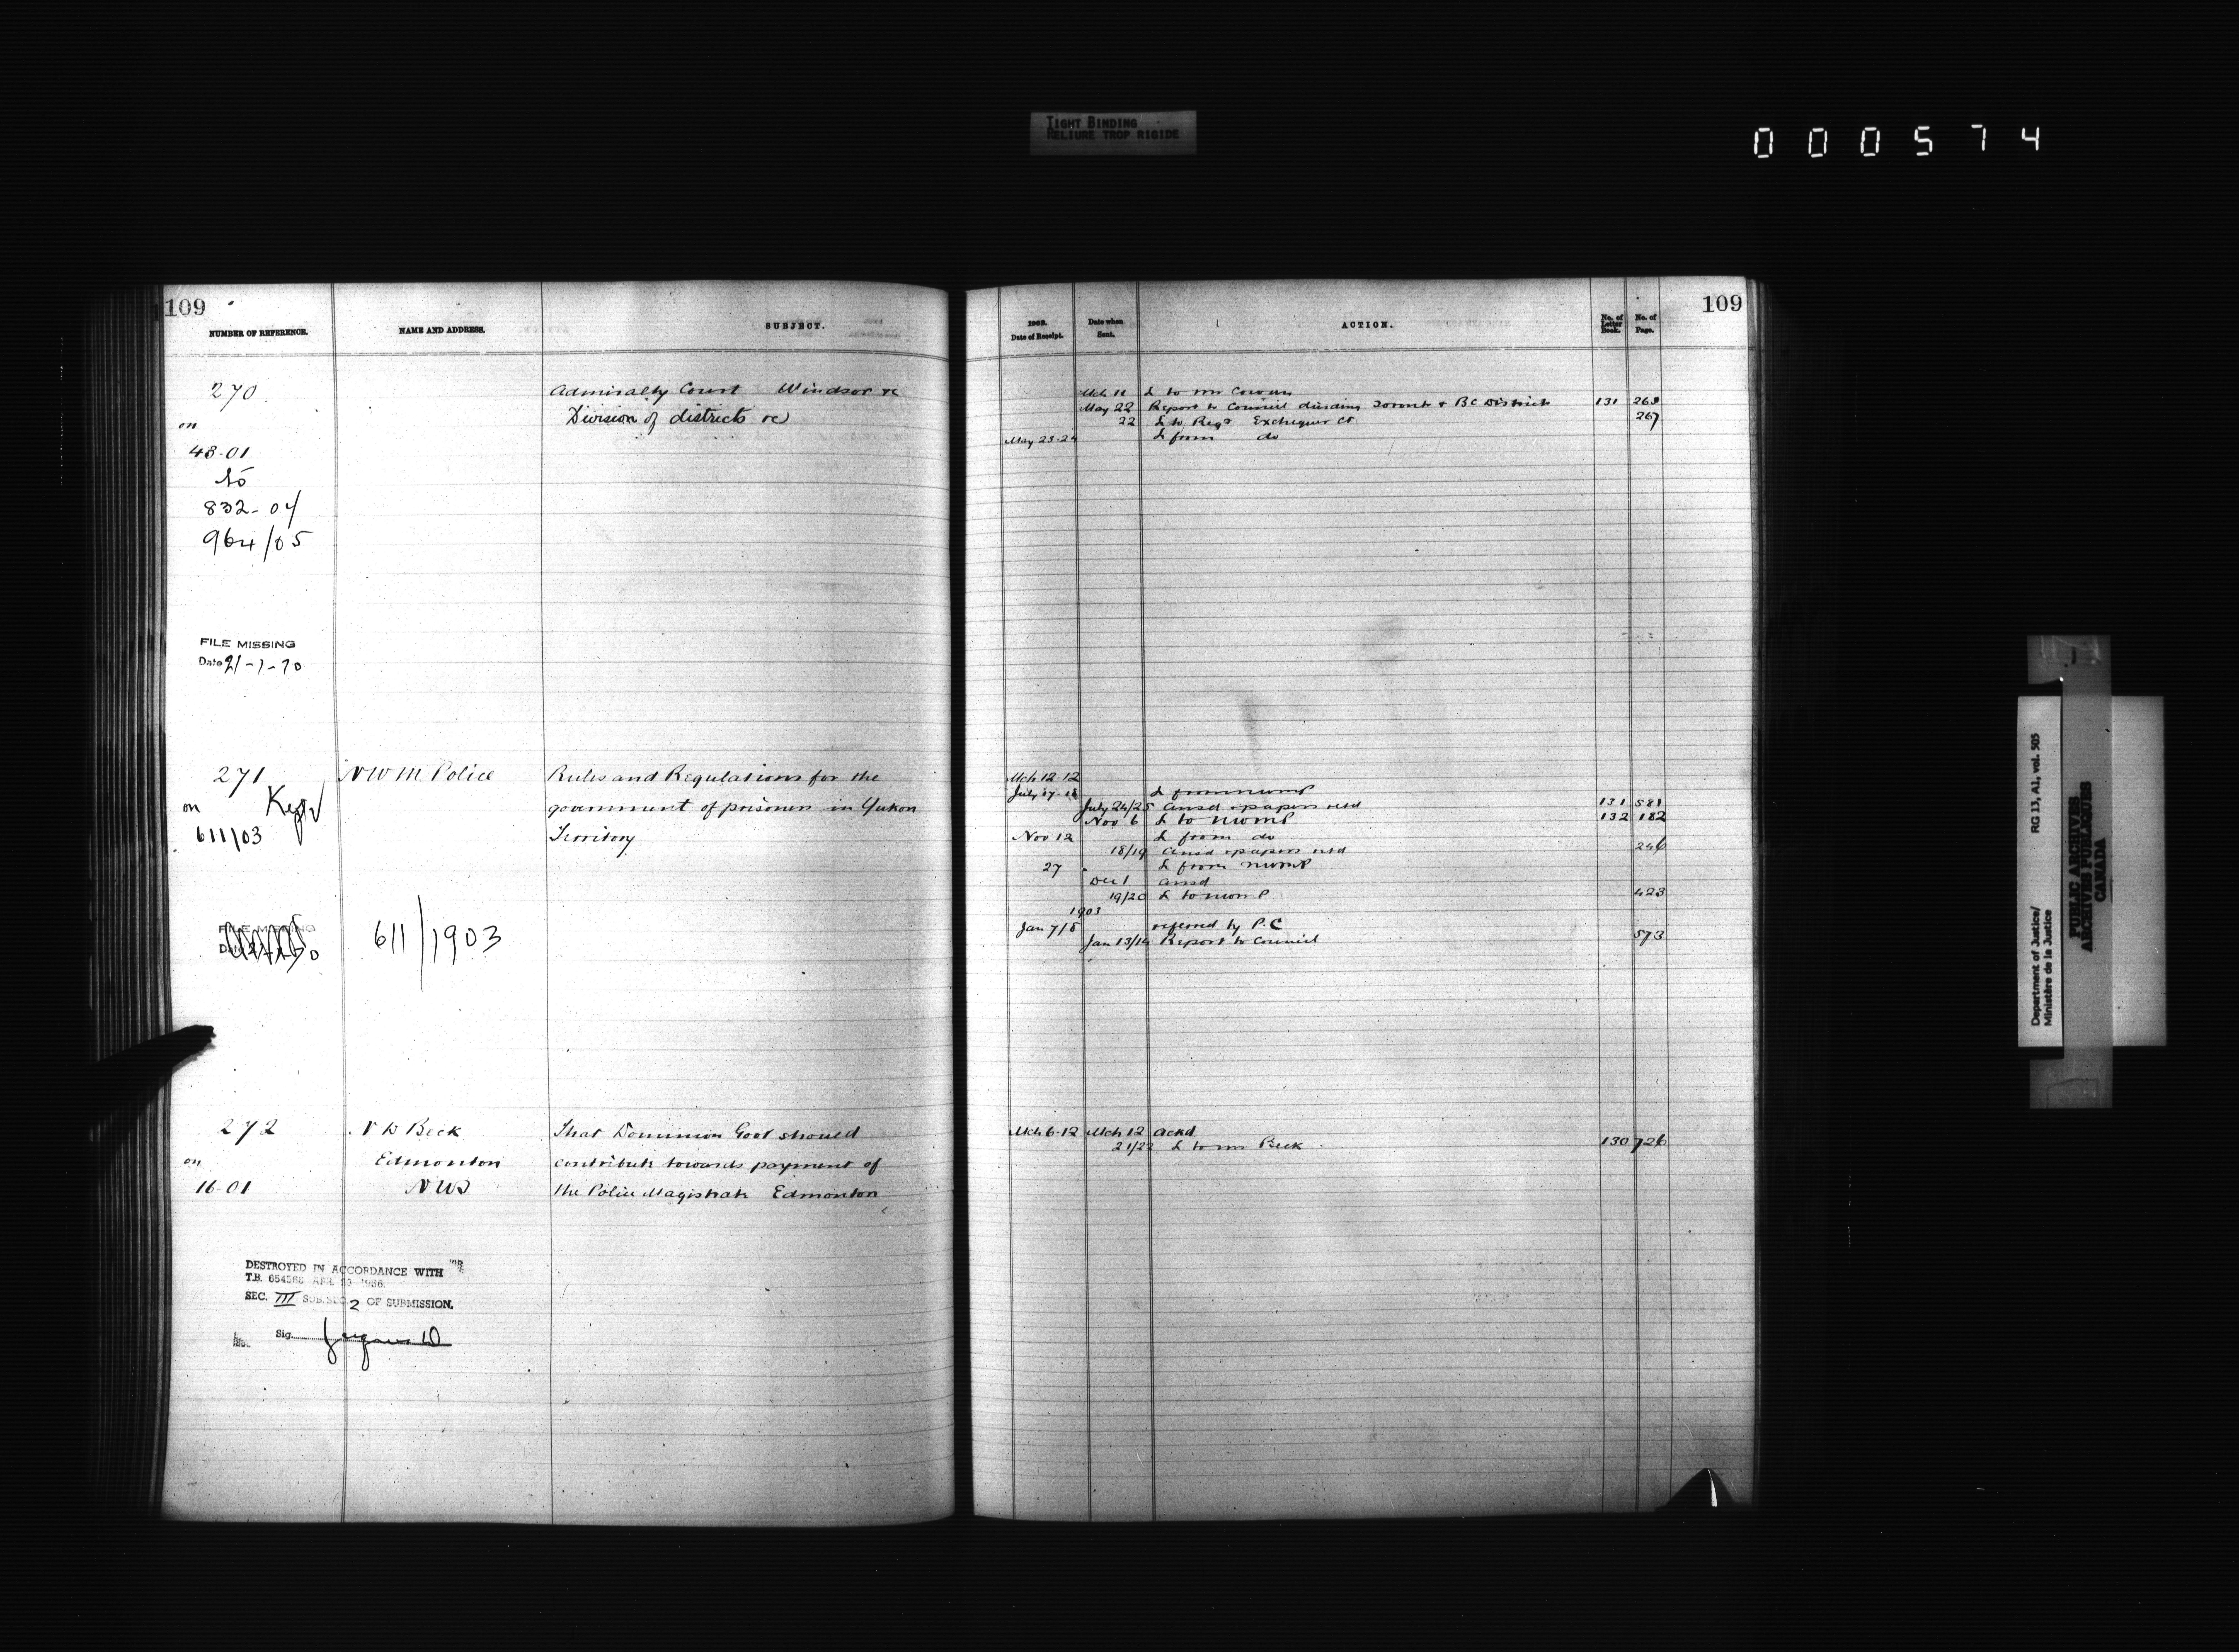 TIGHT BINDING
RELIURE TROP RIGIDE
000574
109
NUMBER OF REFERENCE. NAME AND ADDRESS. SUBJECT.
270 Admiralty Court Windsor re
Division of districts re
on
43-01
to
832-04
964/05
FILE MISSING
Date 21-1-70
271 NWM Police Rules and Regulations for the
on government of prisoners in Yukon
611/03 Territory
611/1903
272 N D Beck That Dominion Govt should
on Edmonton contribute towards payment of
16-01 NWT the Police Magistrate Edmonton
DESTROYED IN ACCORDANCE WITH
T.B. 654568 APR. 1966.
SEC. III SUB.SEC. 2 OF SUBMISSION.
Sig.
109
1902. Date of Receipt. Date when Sent. ACTION. No. of Letter Book. No. of Page.
Mch 11 L to Mr Cowan
May 22 Report to Council dividing Toronto & BC Districts 131 263
22 L to Regr Exchequer Ct 267
May 23-24 L from do
Mch 12-12
July 17-18 L from NWMP
July 24/25 Ansd & papers retd 131 581
Nov 6 L to NWMP 132 182
Nov 12 L from do
18/19 Ansd & papers retd 246
27 L from NWMP
Dec 1 Ansd
19/20 L to NWMP 423
1903
Jan 7/8 referred by P.C
Jan 13/14 Report to Council 573
Mch 6-12 Mch 12 Ackd
21/22 L to Mr Beck 130 726
Department of Justice/ RG 13, A1, vol. 505
Ministère de la Justice
PUBLIC ARCHIVES
ARCHIVES PUBLIQUES
CANADA